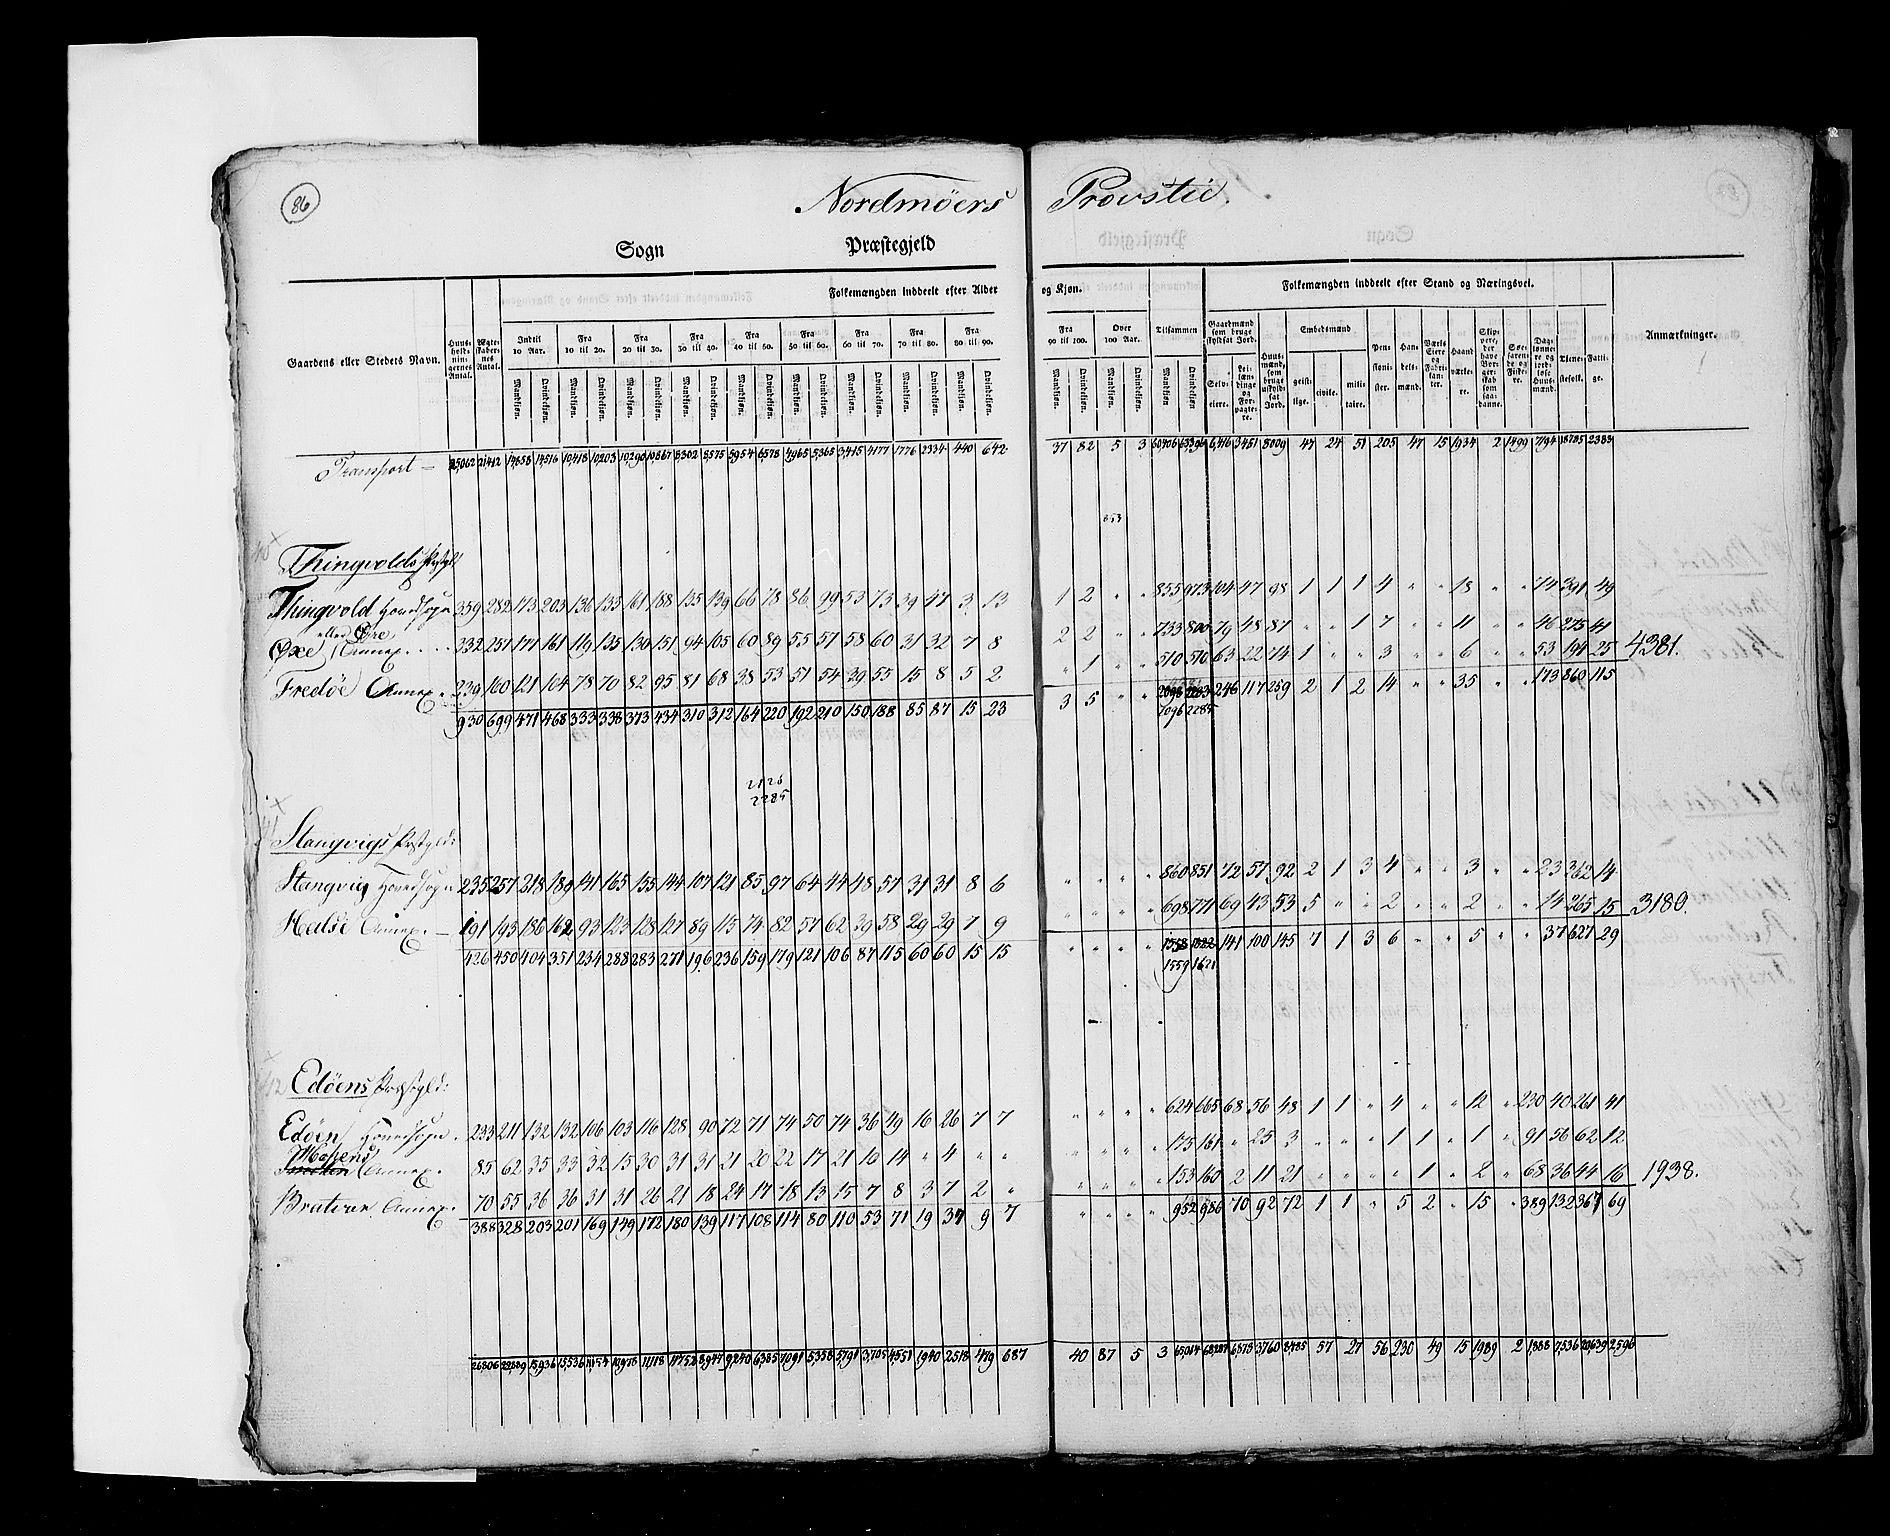 86
Nordmøers Provstie.
Sogn Præstegjeld
Folkemængden inddeelt efter Alder og Kjøn.
Folkemængden inddeelt efter Stand og Næringsvei.
Gaardens eller Stedets Navn.
Huusholdningernes Antal.
Ægteskabernes Antal.
Indtil 10 Aar. Fra 10 til 20. Fra 20 til 30. Fra 30 til 40. Fra 40 til 50. Fra 50 til 60. Fra 60 til 70. Fra 70 til 80. Fra 80 til 90. Fra 90 til 100. Over 100 Aar. Tilsammen
Mandkjøn. Qvindekjøn. Mandkjøn. Qvindekjøn. Mandkjøn. Qvindekjøn. Mandkjøn. Qvindekjøn. Mandkjøn. Qvindekjøn. Mandkjøn. Qvindekjøn. Mandkjøn. Qvindekjøn. Mandkjøn. Qvindekjøn. Mandkjøn. Qvindekjøn. Mandkjøn. Qvindekjøn. Mandkjøn. Qvindekjøn. Mandkjøn Qvindekjøn.
Gaardmænd som bruge skyldsat Jord.
Selveiere. Leilændinge og Forpagtere.
Huusmænd, som bruge uskyldsat Jord.
Embedsmænd
geistlige. civile. militaire.
Pensionister. Handelsmænd. Værks Eiere og Fabrikanter. Haandværkere.
Søefarende og Fiskere. Tjenestefolk. Fattige.
Anmærkninger.
Transport — 25,062 21,412 14,858 14,516 10,418 10,203 10,290 10,867 8302 8,575 5954 6,578 4965 5,365 3,415 4177 1776 2334 440 642 37 82 5 3 60,406 63,306 6,416 3451 8009 47 24 51 205 47 15 1934 2 1499 7194 18785 2383
Thingvolds Præstgld
Thingvold Hovedsogn 359 282 173 203 136 133 161 188 135 139 66 78 86 99 53 73 39 47 3 13 1 2 " " 855 973 104 47 98 1 1 1 4 " " 18 " " 74 391 49
eller Øre
Øxe Annex. 332 257 177 161 119 135 130 151 94 105 60 89 55 57 58 60 31 32 7 8 2 2 " " 733 800 79 48 87 " " 1 7 " " 11 " " 46 275 41
Fredøe Annex 239 160 121 104 78 70 82 95 81 68 38 53 51 54 39 55 15 8 5 2 " 1 " " 510 510 63 22 74 1 " " 3 " " 6 " " 53 194 25 4381.
930 699 471 468 333 338 373 434 310 312 164 220 192 210 150 188 85 87 15 23 3 5 " " 2098 2283 246 117 259 2 1 2 14 " " 35 " " 173 860 115
2096 2285
2126
2285
Stangvigs Præstgld:
Stangvig Hovedsogn 235 257 218 189 141 165 155 144 107 121 85 97 64 44 48 57 31 31 8 6 " " " " 860 851 72 57 92 2 1 3 4 " " 3 " " 23 362 14
Halse Annex. 191 193 186 162 93 123 128 127 89 115 74 82 57 62 39 58 29 29 7 9 " " " " 698 771 69 43 53 5 " " 2 " " 2 " " 14 265 15 3180.
426 450 404 351 234 288 283 271 196 236 159 179 121 106 87 115 60 60 15 15 " " " " 1558 1622 141 100 145 7 1 3 6 " " 5 " " 37 627 29
1559 1621
Edøens Præstgld:
Edøen Hovedsogn. 233 211 132 132 106 103 116 128 90 72 71 74 50 74 36 49 16 26 7 7 " " " " 624 665 68 56 48 1 1 " 4 " " 12 " 230 40 261 41
Annex. 85 62 35 33 32 15 30 31 31 21 20 22 17 21 10 14 " 4 " " " " " " 175 161 " 25 3 " " " 1 1 " 1 " 91 56 62 12
Bratvær Annex. 70 55 36 36 31 31 26 21 18 24 17 18 13 15 7 8 3 7 2 " " " " " 153 160 2 11 21 " " " " 1 " 2 " 68 36 44 16 1938.
388 328 203 201 169 149 172 180 139 117 108 114 80 110 53 71 19 37 9 7 " " " " 952 986 70 92 72 1 1 " 5 2 " 15 " 389 132 367 69
26806 22889 15,936 15,536 11,154 10,978 11,118 11,752 8,947 9,240 6385 7091 5,358 5,791 3,705 4,551 1940 2518 479 687 40 87 5 3 65,014 68,287 6873 3760 8,485 57 27 56 230 49 15 1989 2 1888 7,536 20,639 2596